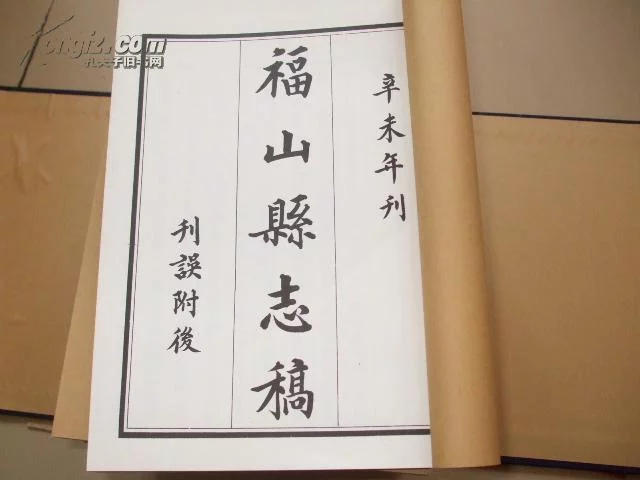 辛未年刊
福山縣志稿
刊誤附後
Kongfz.com
孔夫子旧书网